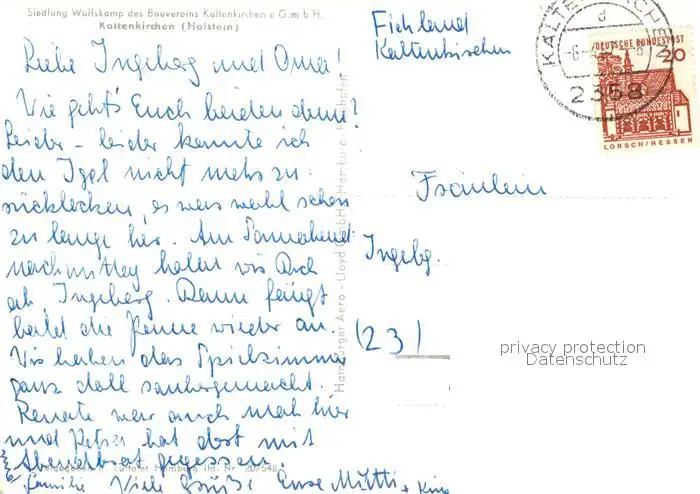 Siedlung Wulfskamp des Bauvereins Kaltenkirchen e G.m b H.
Kaltenkirchen (Holstein)
Liebe Ingeborg und Oma!
Wie geht's Euch beiden denn?
Leider - leider konnte ich
den Igel nicht mehr zu-
rücklocken, es war wohl schon
zu lange her. Am Sonnabend
nachmittag holen wir Dich
ab Ingeborg. Dann fängt
bald die Penne wieder an.
Wir haben das Spielzimmer
ganz doll saubergemacht.
Renate war auch noch hier
und Peter hat dort mit
Abendbrot gegessen.
Familie Viele Grüße Eure Mutti +
Freigegeben Luftamt Hamburg lfd. Nr 207548
Hamburger Aero-Lloyd GmbH Hamburg
Kaltenkirchen
KALTENKIRCHEN
d
2358
DEUTSCHE BUNDESPOST
20
LORSCH/HESSEN
Fräulein
Ingebg.
(23)
privacy protection
Datenschutz